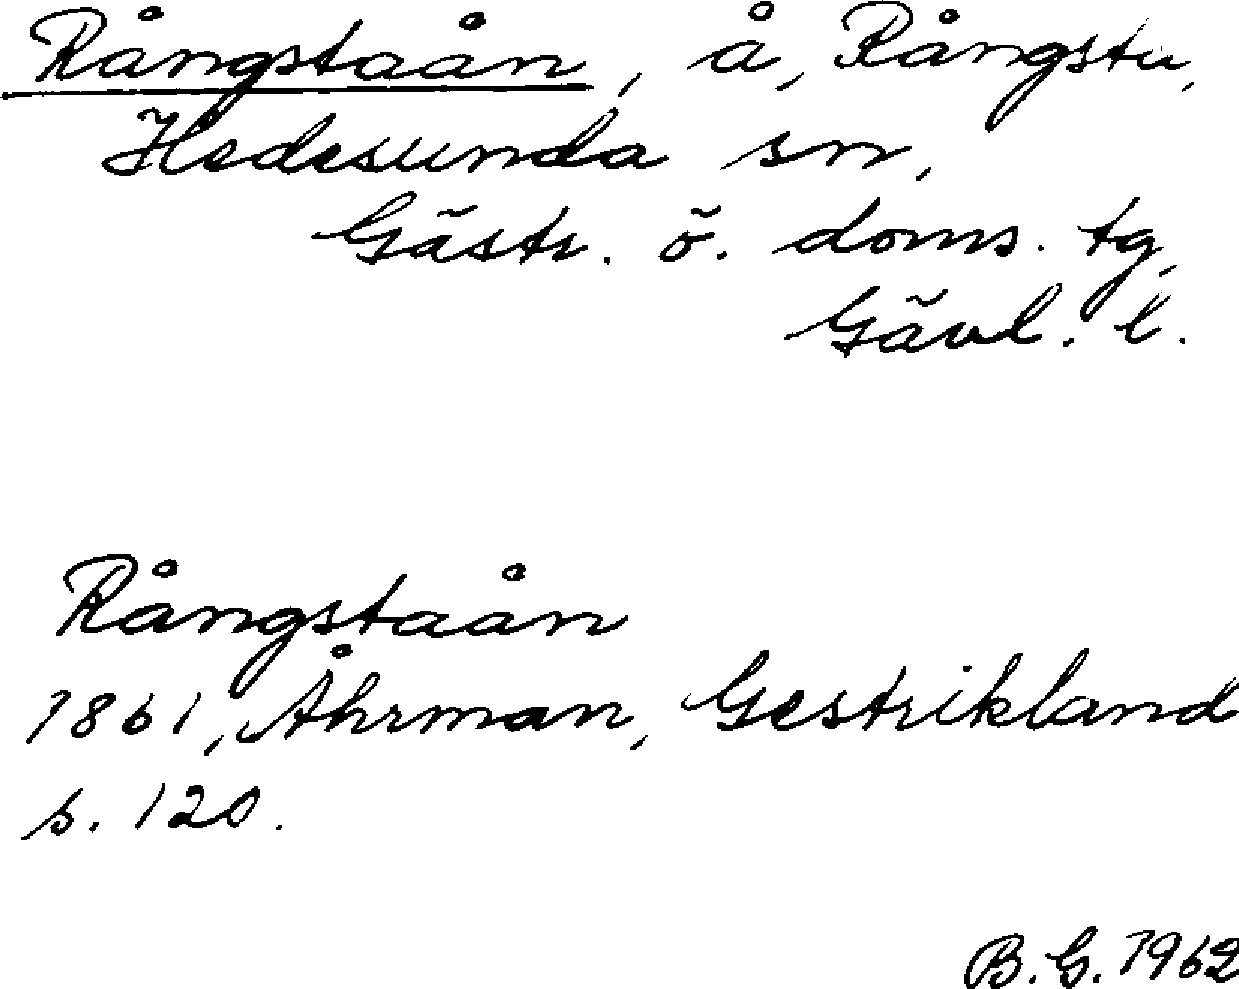 Rångstaån, å, Rångsta,
Hedesunda sn,
Gästr. ö. doms. tg,
Gävl. l.
Rångstaån
1861, Åhrman, Gestrikland
s. 120.
B. G. 1962